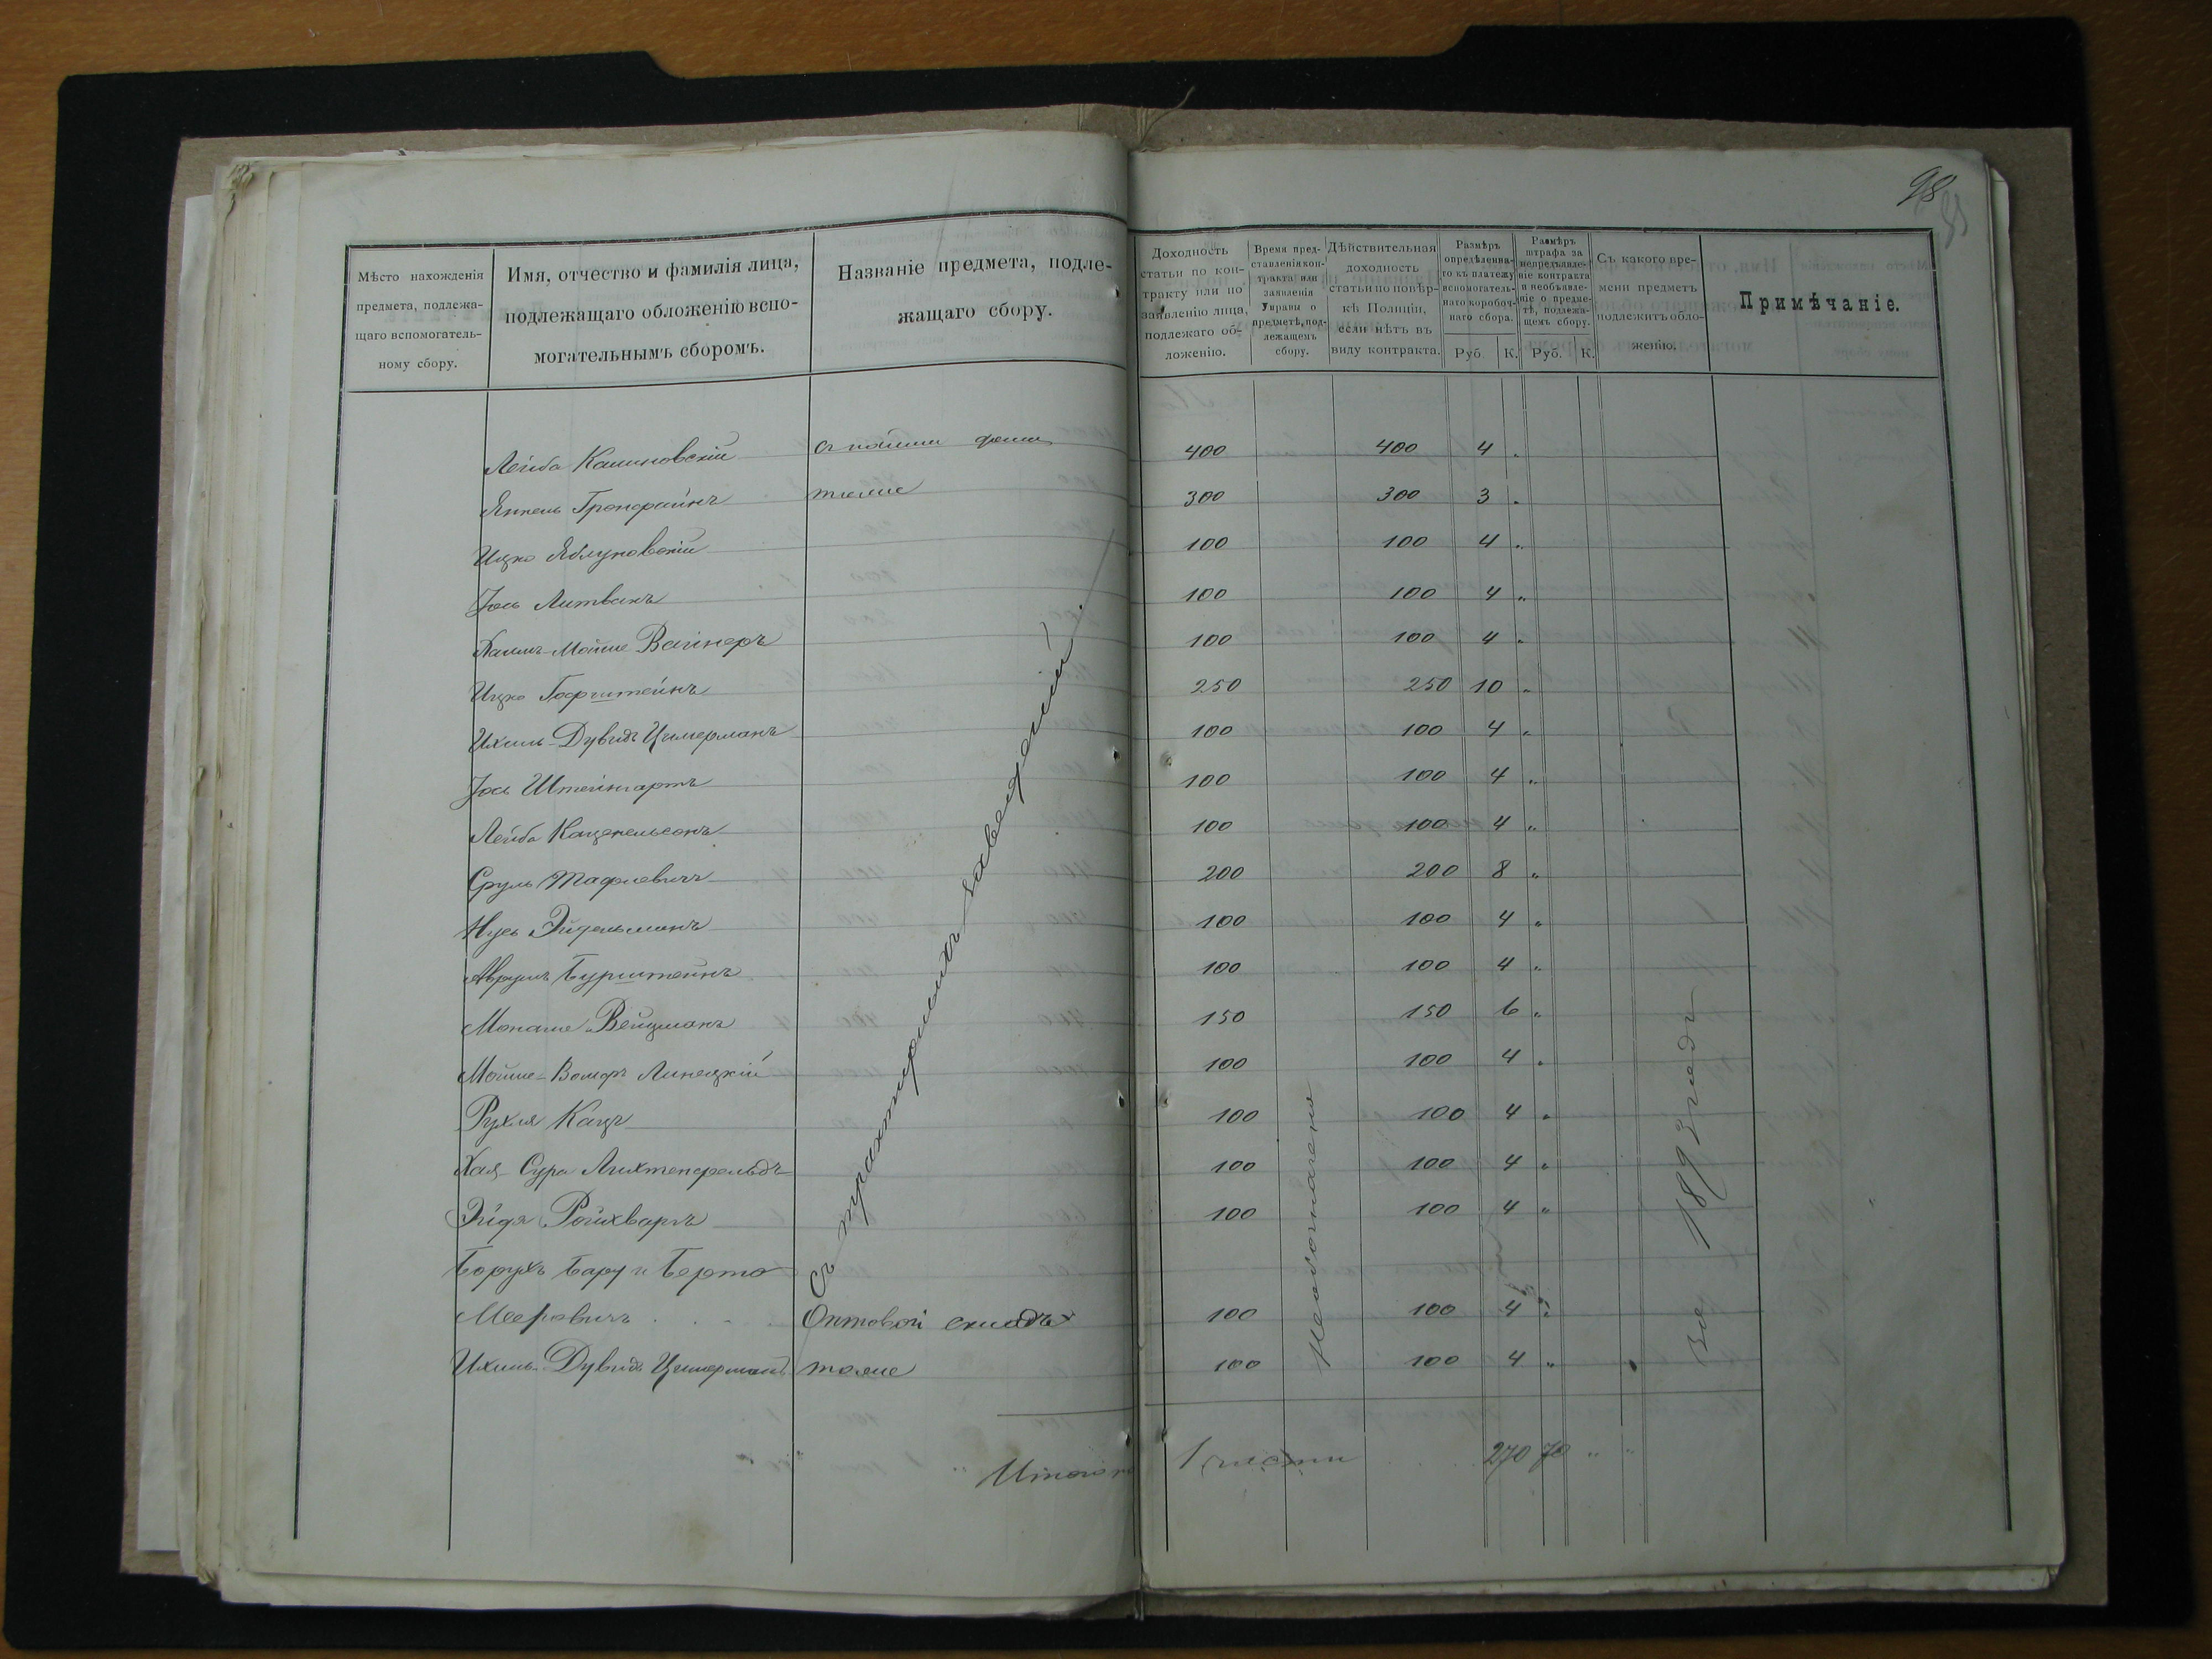 98
Мѣсто нахожденія предмета, подлежащаго вспомогательному сбору.
Имя, отчество и фамилія лица, подлежащаго обложенію вспомогательнымъ сборомъ.
Названіе предмета, подлежащаго сбору.
Доходность статьи по контракту или по заявленію лица, подлежаго обложенію.
Время представленія контракта или заявленія Управы о предметѣ, подлежащемъ сбору.
Дѣйствительная доходность статьи по повѣркѣ Полиціи, если нѣтъ въ виду контракта.
Размѣръ опредѣленнаго къ платежу вспомогательнаго коробочнаго сбора. Руб. К.
Размѣръ штрафа за непредъявленіе контракта и необъявленіе о предметѣ, подлежащемъ сбору. Руб. К.
Съ какого времени предметъ подлежитъ обложенію.
Примѣчаніе.
Лейба 400 400 4 "
Янкель Гронфайнъ тоже 300 300 3 "
Ицко Яблуновскій 100 100 4 "
Іось Литвакъ 100 100 4 "
Хаимъ-Мойше Вайнеръ 100 100 4 "
Ицко Гофштейнъ 250 250 10 "
Ихиль-Дувидъ Цимерманъ 100 100 4 "
Іось Штейнгартъ 100 100 4 "
Лейба Каценельсонъ 100 100 4 "
Сруль 200 200 8 "
Нусь Эйдельманъ 100 100 4 "
Аврумъ Бурштейнъ 100 100 4 "
Монаше Вейцманъ 150 150 6 "
Мойше-Вольфъ Линецкій 100 100 4 "
Рухля Кацъ 100 100 4 "
Хая-Сура Лихтенфельдъ 100 100 4 "
Эйдя Ройхваргъ 100 100 4 "
Борухъ и Берко
Мееровичъ Оптовой складъ 100 100 4 "
Ихиль-Дувидъ Цимерманъ тоже 100 100 4 "
Съ трактирныхъ заведеній
1893 годъ
Итого по 1 части 270 70 " "